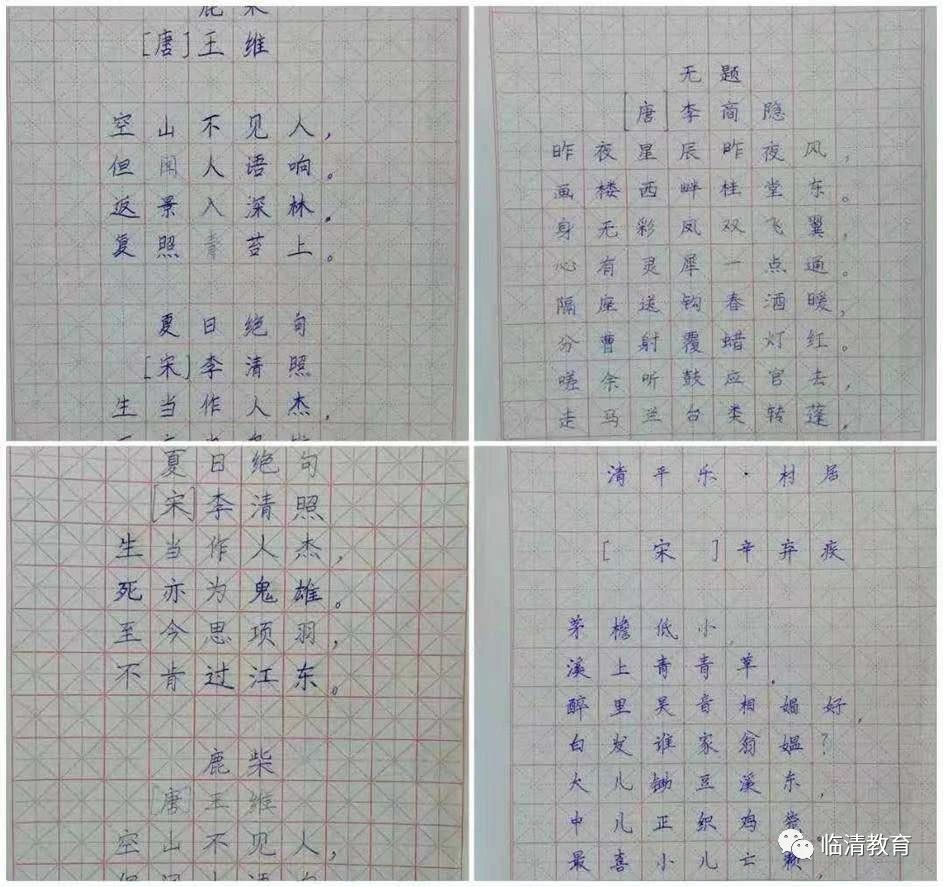 鹿柴
[唐]王维
空山不见人，
但闻人语响。
返景入深林。
复照青苔上。
夏日绝句
[宋]李清照
生当作人杰，
无题
[唐]李商隐
昨夜星辰昨夜风，
画楼西畔桂堂东。
身无彩凤双飞翼，
心有灵犀一点通。
隔座送钩春酒暖，
分曹射覆蜡灯红。
嗟余听鼓应官去，
走马兰台类转蓬。
夏日绝句
[宋]李清照
生当作人杰，
死亦为鬼雄。
至今思项羽，
不肯过江东。
鹿柴
[唐]王维
空山不见人，
清平乐·村居
[宋]辛弃疾
茅檐低小，
溪上青青草。
醉里吴音相媚好，
白发谁家翁媪？
大儿锄豆溪东，
中儿正织鸡
最喜小儿亡赖，
临清教育